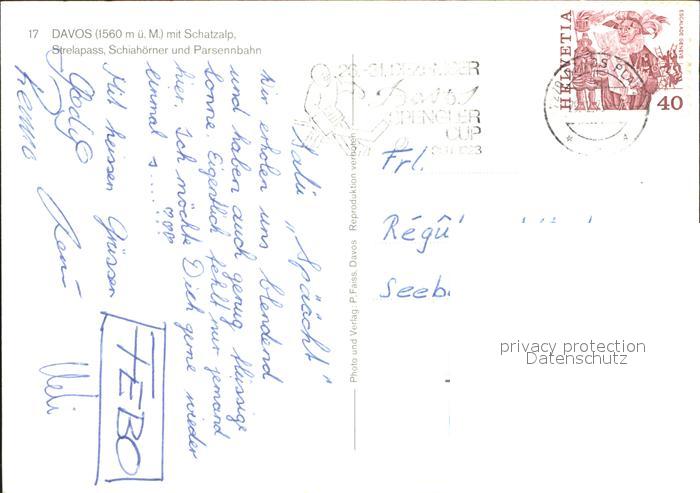 17 DAVOS (1560 m ü. M.) mit Schatzalp,
Strelapass, Schiahörner und Parsennbahn
Salü "Spächt"
Wir erholen uns blendend
und haben auch genug flüssige
Sonne. Eigentlich fehlt nur jemand
hier. Ich möchte Dich gerne wieder
einmal s....
Mit heissen Grüssen
HEBO
Photo und Verlag: P. Faiss, Davos Reproduktion verboten
26.-31. DEZEMBER
Davos
SPENGLER
CUP
HELVETIA
ESCALADE GENÈVE
40
Frl.
Régu
Seeb
privacy protection
Datenschutz